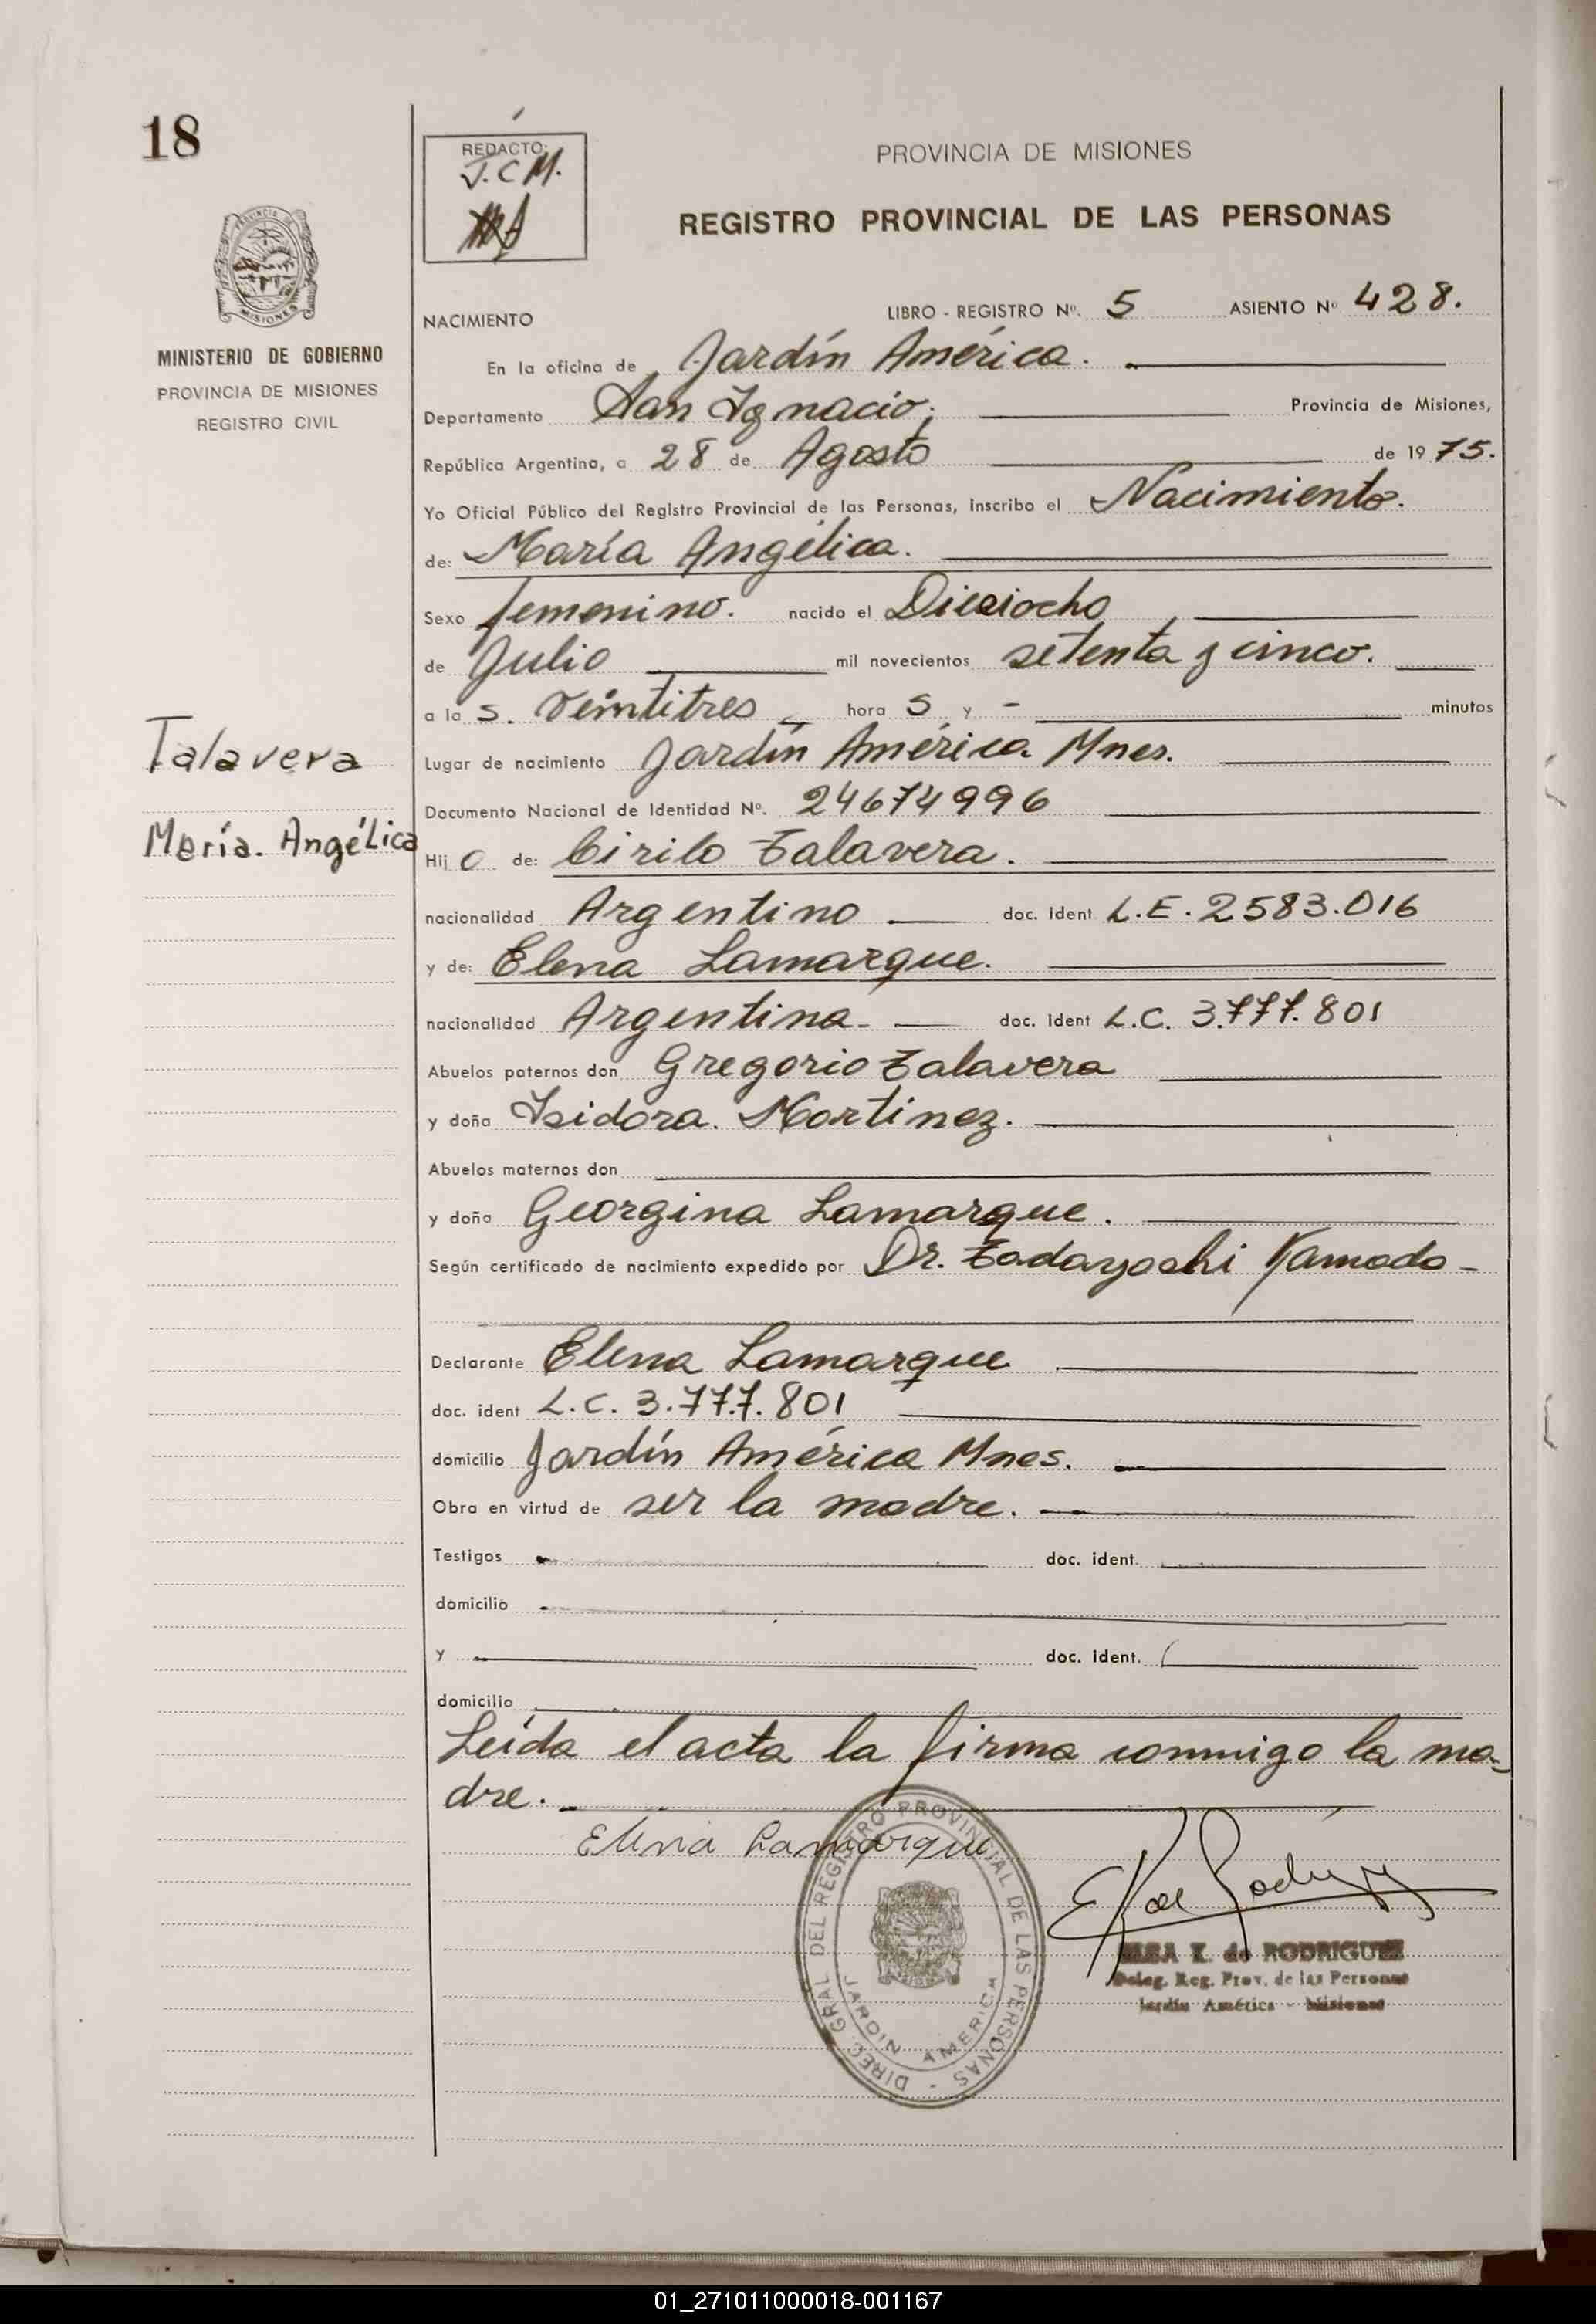 18
REDACTO:
J.C.M.
PROVINCIA DE MISIONES
REGISTRO PROVINCIAL DE LAS PERSONAS
MISIONES
MINISTERIO DE GOBIERNO
PROVINCIA DE MISIONES
REGISTRO CIVIL
NACIMIENTO LIBRO - REGISTRO Nº. 5 ASIENTO Nº 428.
En la oficina de Jardín América.
Departamento San Ignacio; Provincia de Misiones,
República Argentina, a 28 de Agosto de 1975.
Yo Oficial Público del Registro Provincial de las Personas, inscribo el Nacimiento.
de: María Angélica.
Sexo femenino. nacido el Dieciocho
de Julio mil novecientos setenta y cinco.
a la s. veintitres hora s y - minutos
Talavera
María. Angélica
Lugar de nacimiento Jardín América Mnes.
Documento Nacional de Identidad Nº. 24674996
Hij o de: Cirilo Talavera.
nacionalidad Argentino doc. ident L.E. 2583.016
y de: Elena Lamarque.
nacionalidad Argentina. doc. ident L.C. 3.777.801
Abuelos paternos don Gregorio Talavera
y doña Isidora. Martinez.
Abuelos maternos don
y doña Georgina Lamarque.
Según certificado de nacimiento expedido por Dr. Tadayoshi Yamada -
Declarante Elena Lamarque
doc. ident L.C. 3.777.801
domicilio Jardín América Mnes.
Obra en virtud de ser la madre.
Testigos doc. ident.
domicilio
y doc. ident.
domicilio
Leída el acta la firma conmigo la ma-
dre.
Elena Lamarque
DIREC. GRAL. DEL REGISTRO PROVINCIAL DE LAS PERSONAS -
JARDIN AMERICA
ELSA K. de RODRIGUEZ
Deleg. Reg. Prov. de las Personas
Jardín América - Misiones
01_271011000018-001167